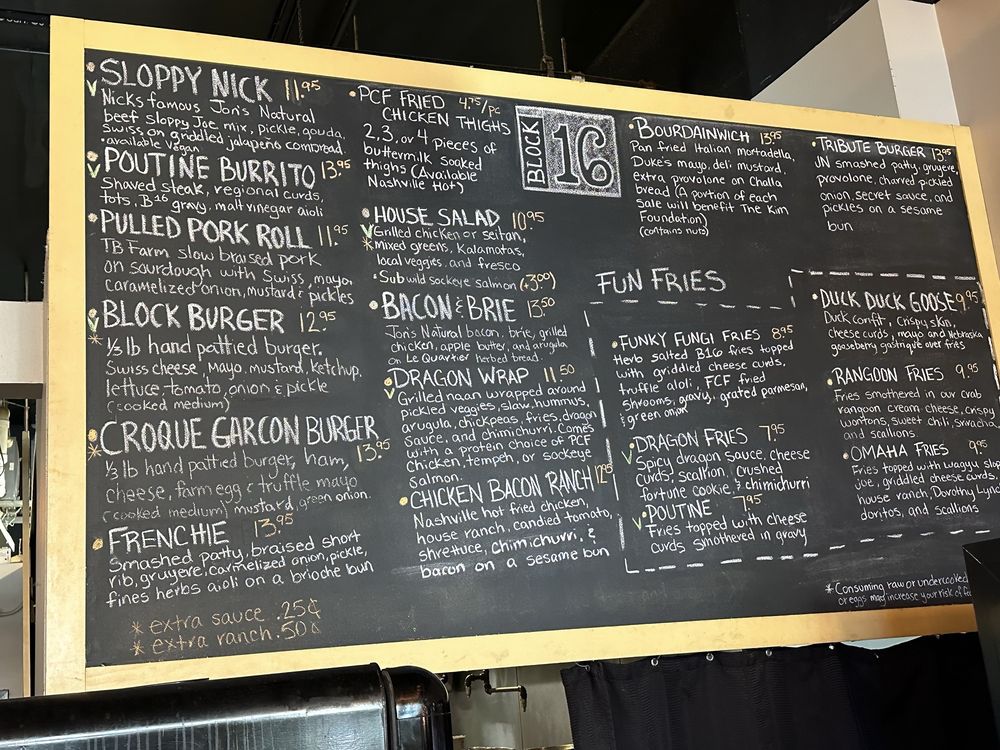 SLOPPY NICK 11.95
V Nicks famous Jon's Natural
beef sloppy Joe mix, pickle, gouda,
swiss on griddled jalapeño cornbread.
• available vegan
V POUTINE BURRITO 13.95
Shaved steak, regional curds,
tots, B16 gravy, malt vinegar aioli
PULLED PORK ROLL 11.95
TB Farm slow braised pork
on sourdough with Swiss, mayo,
caramelized onion, mustard & pickles
V BLOCK BURGER 12.95
* 1/3 lb hand pattied burger.
Swiss cheese, Mayo, mustard, ketchup,
lettuce, tomato, onion & pickle
(cooked medium)
CROQUE GARCON BURGER
* 13.95
1/3 lb hand pattied burger, ham,
cheese, farm egg & truffle mayo
(cooked medium) mustard, green onion.
• FRENCHIE 13.95
Smashed patty, braised short
rib, gruyere, carmelized onion, pickle,
fines herbs aioli on a brioche bun
* extra sauce .25¢
* extra ranch .50¢
• PCF FRIED 4.75/pc
CHICKEN THIGHS
2,3, or 4 pieces of
buttermilk soaked
thighs (Available
Nashville Hot)
• HOUSE SALAD 10.95
V Grilled chicken or seitan,
* mixed greens, Kalamatas,
local veggies, and fresco
• Sub wild sockeye salmon (+3.00)
• BACON & BRIE 13.50
Jon's Natural bacon, brie, grilled
chicken, apple butter, and arugula
on Le Quartier herbed bread.
• DRAGON WRAP 11.50
V Grilled naan wrapped around
pickled veggies, slaw, hummus,
arugula, chickpeas, fries, dragon
sauce, and chimichurri. Comes
with a protein choice of PCF
chicken, tempeh, or sockeye
salmon.
• CHICKEN BACON RANCH 12.95
Nashville hot fried chicken,
house ranch, candied tomato,
shrettuce, chimichurri, &
bacon on a sesame bun
BLOCK 16
• BOURDAINWICH 13.95
Pan fried Italian mortadella,
Duke's mayo, deli mustard,
extra provolone on Challa
bread (A portion of each
sale will benefit The Kim
Foundation)
(contains nuts)
• TRIBUTE BURGER 13.95
JN smashed patty, gruyere,
provolone, charred pickled
onion, secret sauce, and
pickles on a sesame
bun
FUN FRIES
• FUNKY FUNGI FRIES 8.95
Herb salted B16 fries topped
with griddled cheese curds,
truffle aioli, FCF fried
shrooms, gravy, grated parmesan,
& green onion
• DRAGON FRIES 7.95
V Spicy dragon sauce, cheese
curds, scallion, crushed
fortune cookie, & chimichurri
• POUTINE 7.95
V Fries topped with cheese
curds smothered in gravy
• DUCK DUCK GOOSE 9.95
Duck confit, crispy skin,
cheese curds, mayo and Nebraska
gooseberry gastrique over fries
• RANGOON FRIES 9.95
Fries smothered in our crab
rangoon cream cheese, crispy
wontons, sweet chili, sriracha
and scallions.
• OMAHA FRIES 9.95
Fries topped with wagyu
joe, griddled cheese curds,
house ranch, Dorothy Lynch
doritos, and scallions
* Consuming raw or undercooked
or eggs may increase your risk of